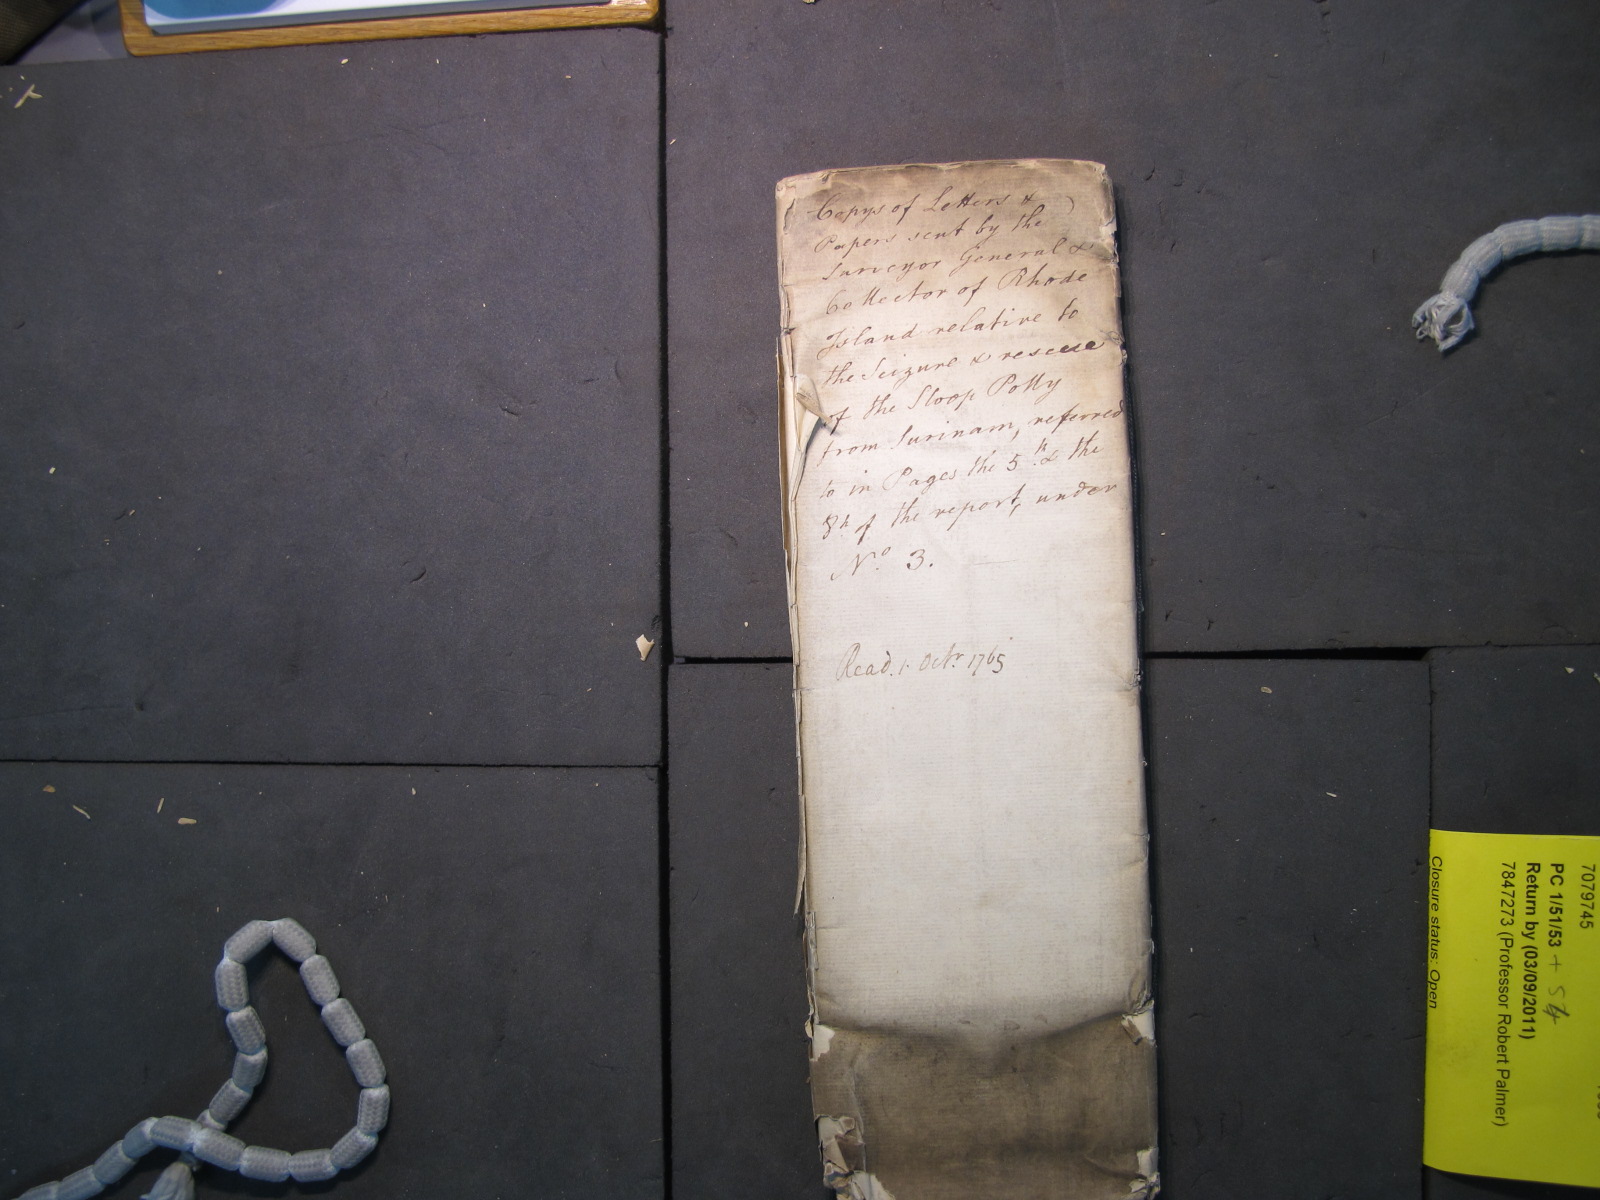 Copys of Letters &
Papers sent by the
Surveyor General &
Collector of Rhode
Island relative to
the Seizure & rescue
of the Sloop Polly
from Surinam, referred
to in Pages the 5th & the
8th of the report, under
No. 3.
Read 1 Octr. 1765
7079745
PC 1/51/53 + 54
Return by (03/09/2011)
7847273 (Professor Robert Palmer)
Closure status: Open